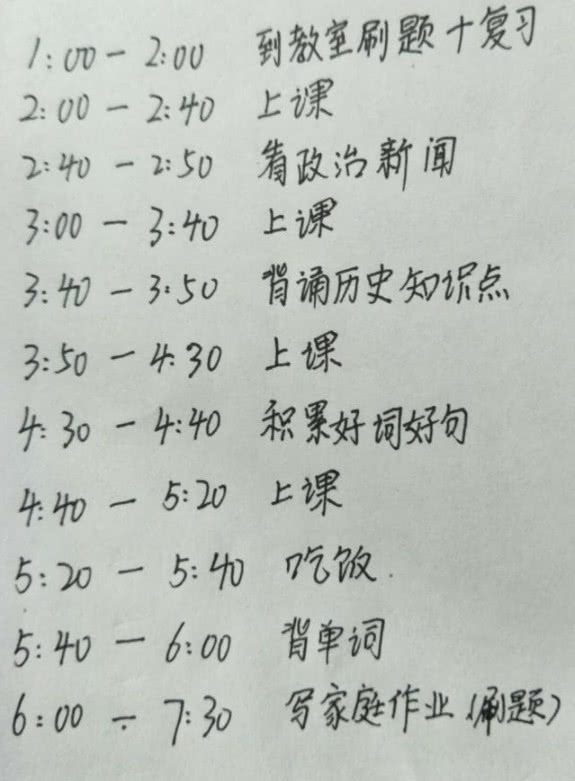 1:00 - 2:00 到教室刷题+复习
2:00 - 2:40 上课
2:40 - 2:50 看政治新闻
3:00 - 3:40 上课
3:40 - 3:50 背诵历史知识点
3:50 - 4:30 上课
4:30 - 4:40 积累好词好句
4:40 - 5:20 上课
5:20 - 5:40 吃饭.
5:40 - 6:00 背单词
6:00 ÷ 7:30 写家庭作业(刷题)